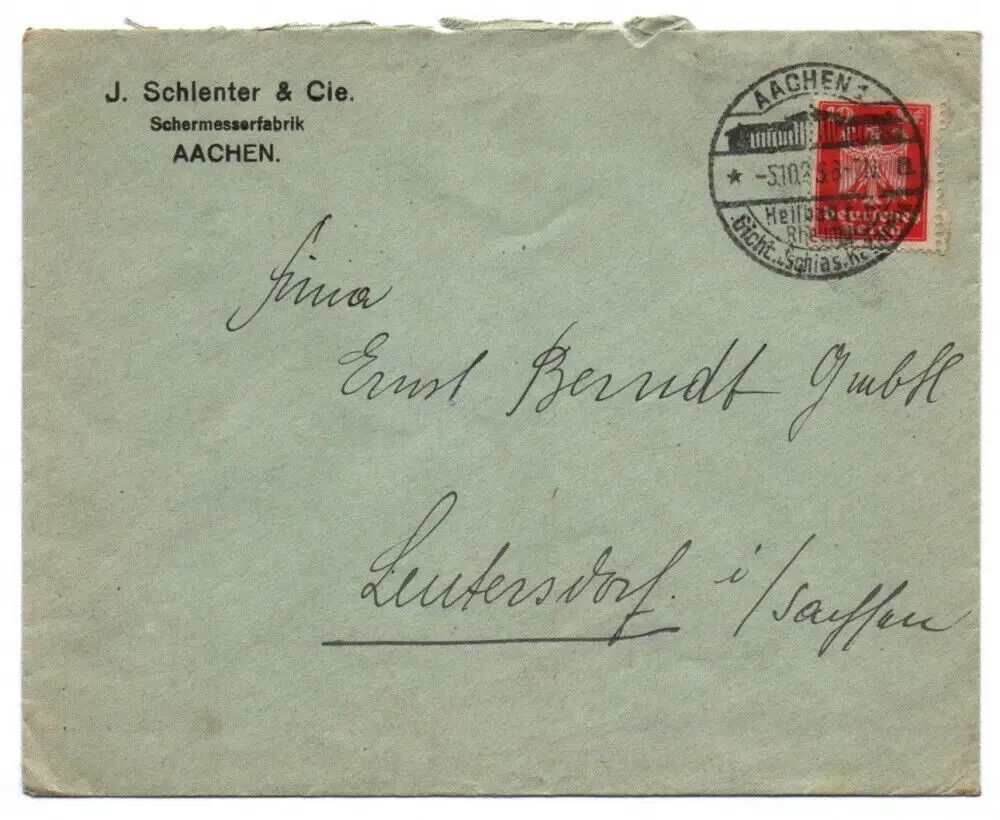 J. Schlenter & Cie.
Schermesserfabrik
AACHEN.
AACHEN 1
Heilbad
Gicht. Ischias.
10
Deutsches
Firma
Ernst Berndt GmbH
Leutersdorf.
i/Sachsen